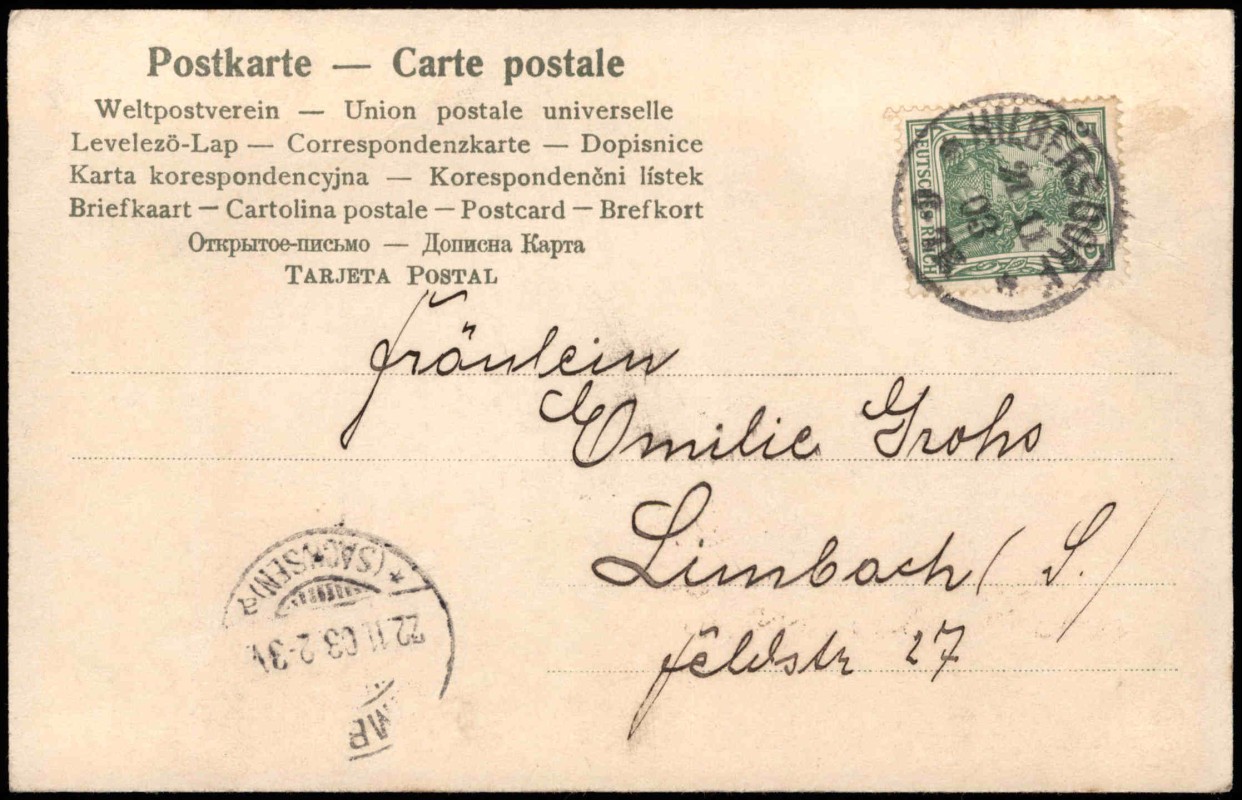 Postkarte — Carte postale
Weltpostverein — Union postale universelle
Levelező-Lap — Correspondenzkarte — Dopisnice
Karta korespondencyjna — Korespondenčni lístek
Briefkaart — Cartolina postale — Postcard — Brefkort
Открытое-письмо — Дописна Карта
TARJETA POSTAL
DEUTSCHES REICH
5 5
HILBERSDORF
21 11
03
Fräulein
Emilie Grohs
Limbach (S.)
Feldstr 27
*(SACHSEN)a
22.11.03.2-3